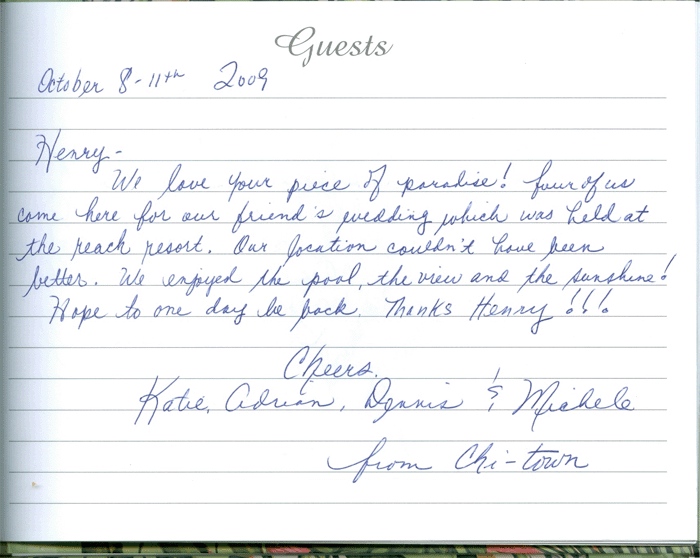 Guests
October 8-11th 2009
Henry-
We love your piece of paradise! Four of us
come here for our friend's wedding which was held at
the reach resort. Our location couldn't have been
better. We enjoyed the pool, the view and the sunshine!
Hope to one day be back. Thanks Henry!!!
Cheers,
Katie, Adrian, Dennis & Michele
from Chi-town